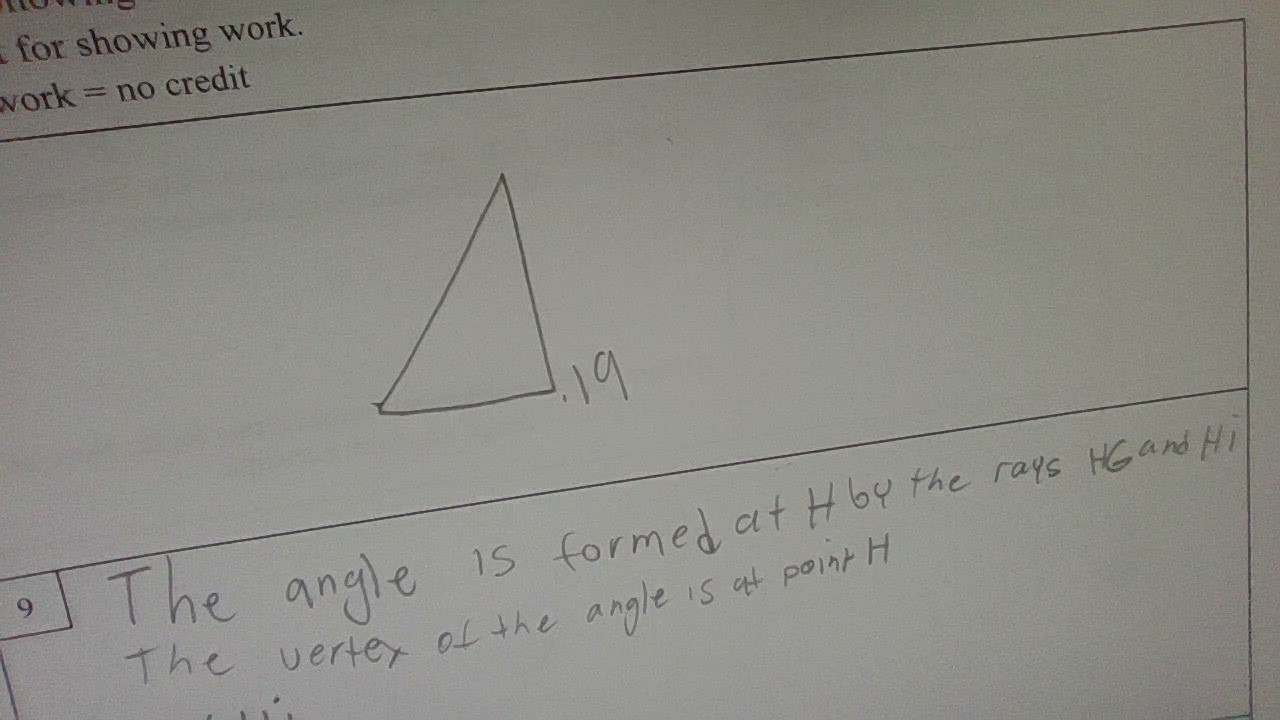 for showing work.
work = no credit
.19
9
The angle is formed at H by the rays HG and Hi
The vertex of the angle is at point H